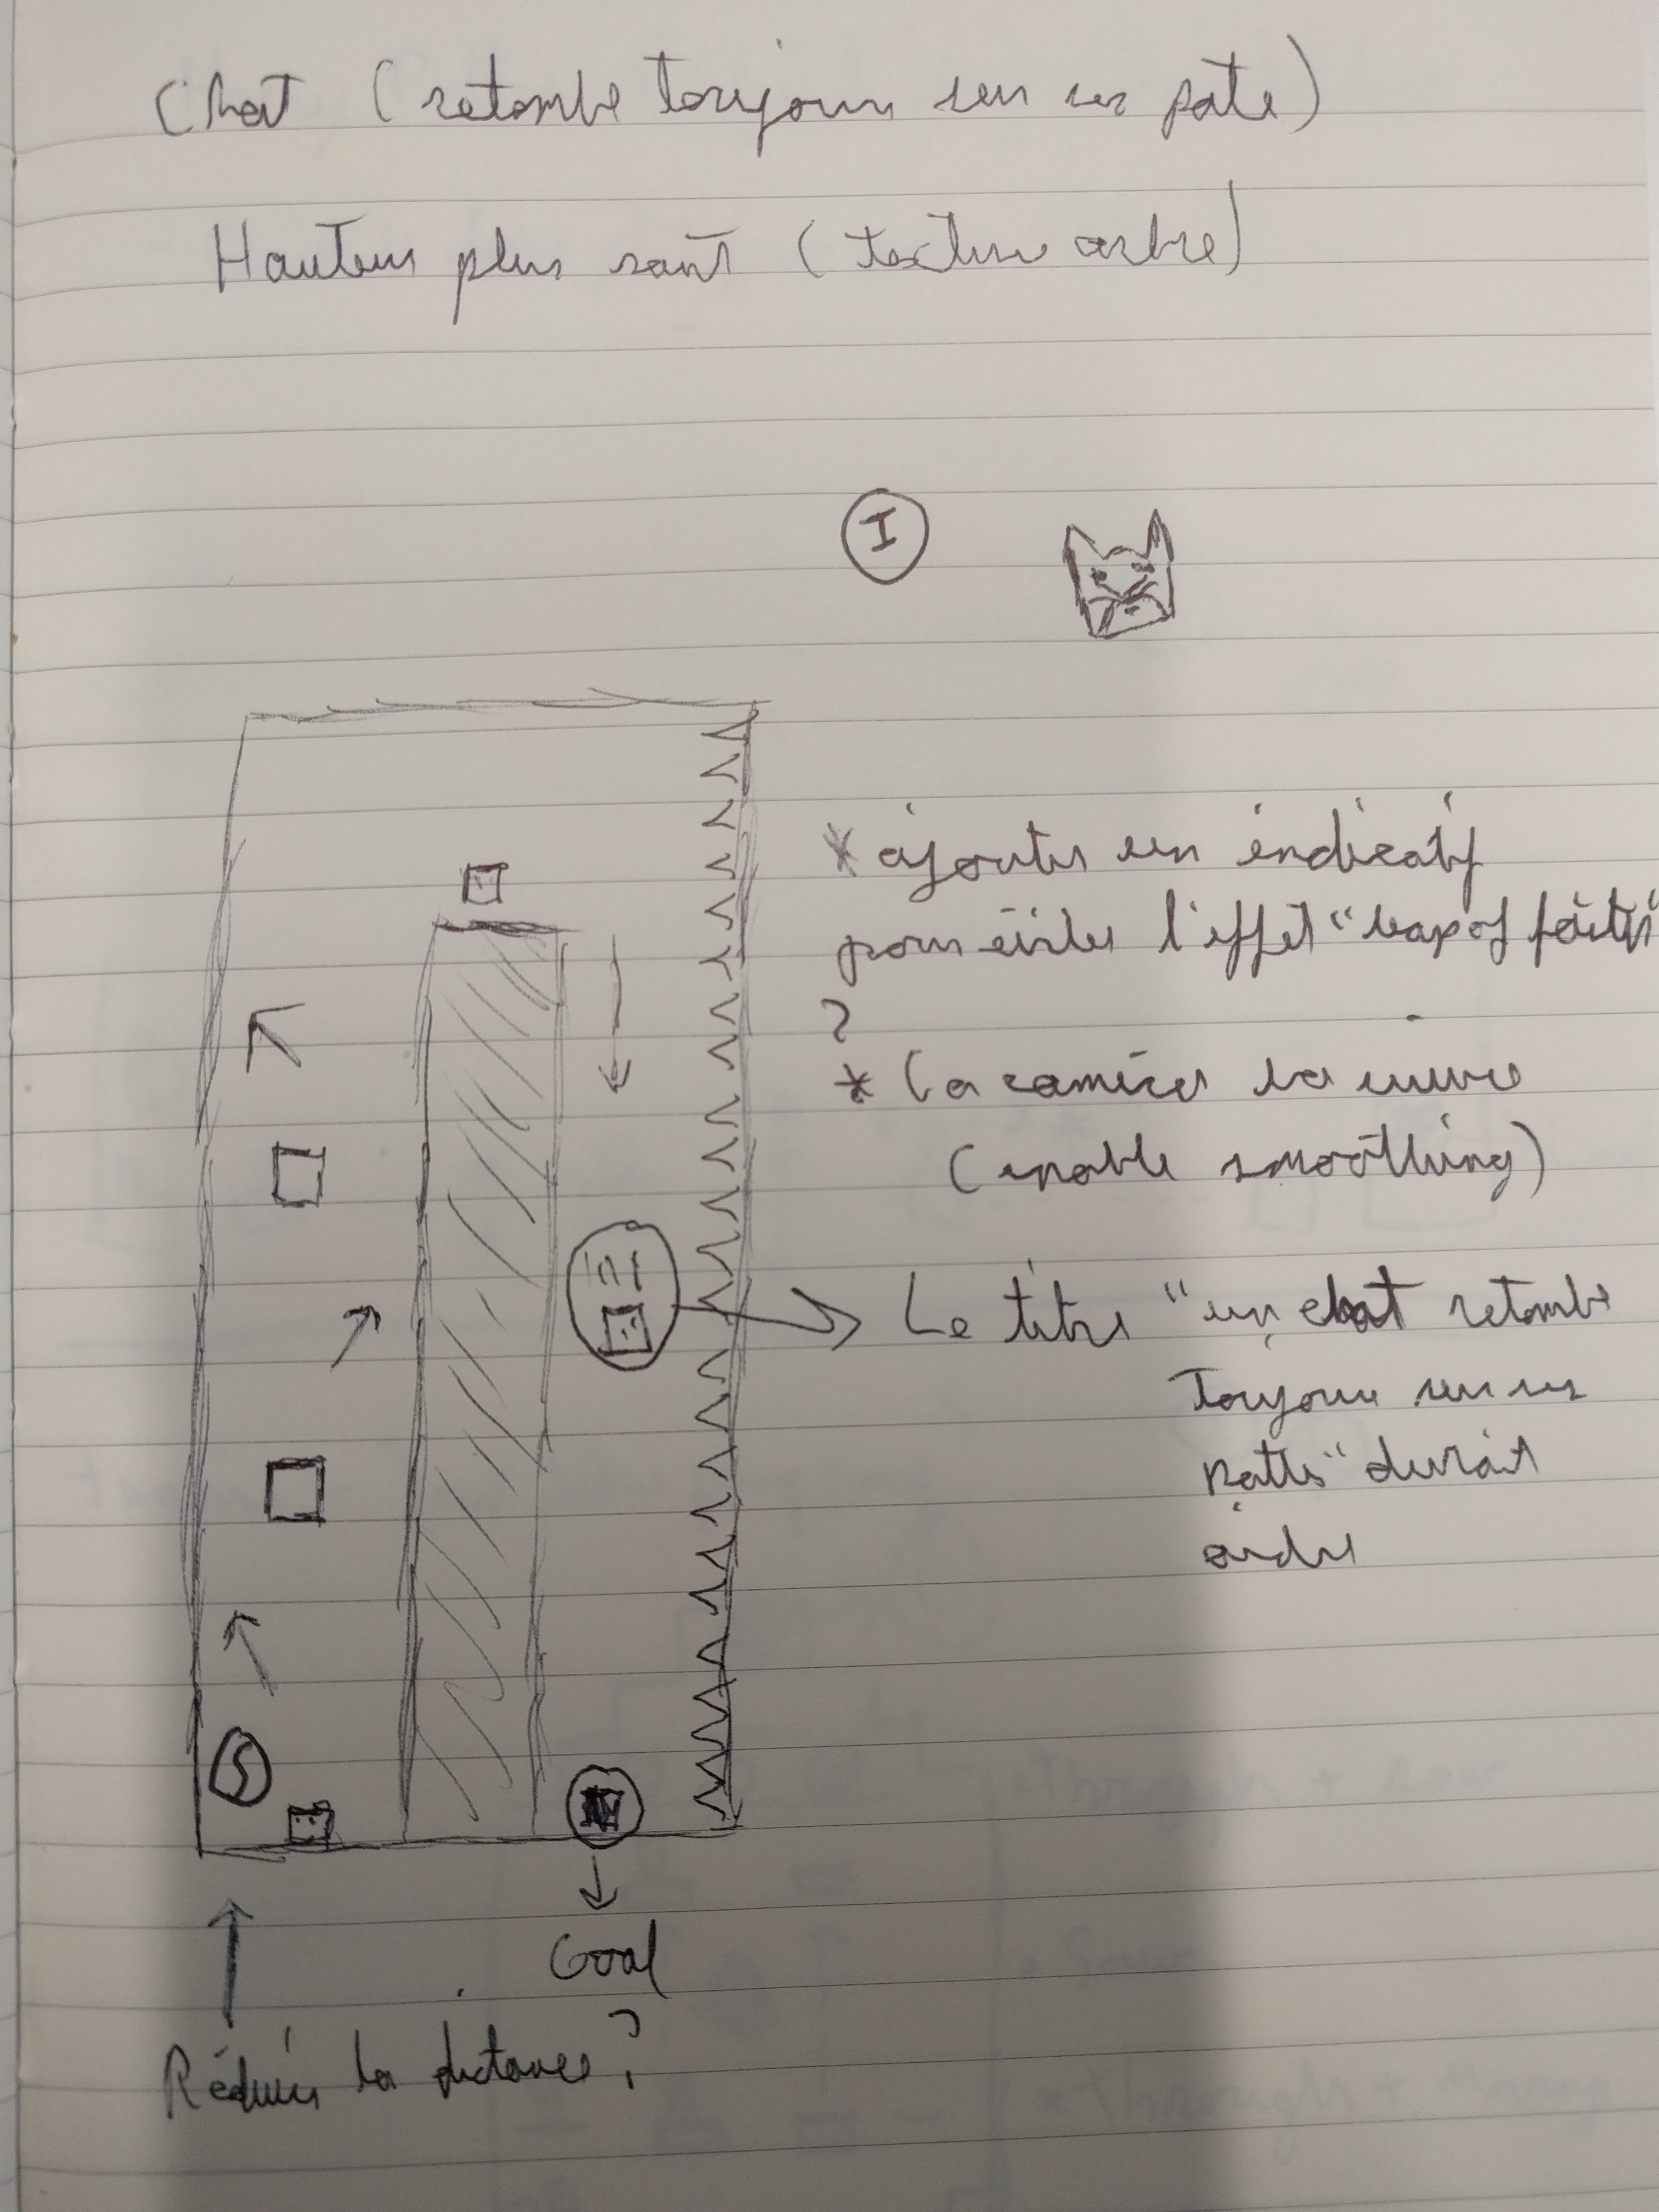 Chat (retombe toujours sur ses pate)
Hauteur plus saut (texture arbre)
I
* ajouter un indicatif
pour éviter l'effet "leap of faith"
?
* la caméra la suivre
(enable smoothing)
Le titre "un chat retombe
toujours sur ses
pattes" devrait
aider
S
Goal
Réduire la distance ?